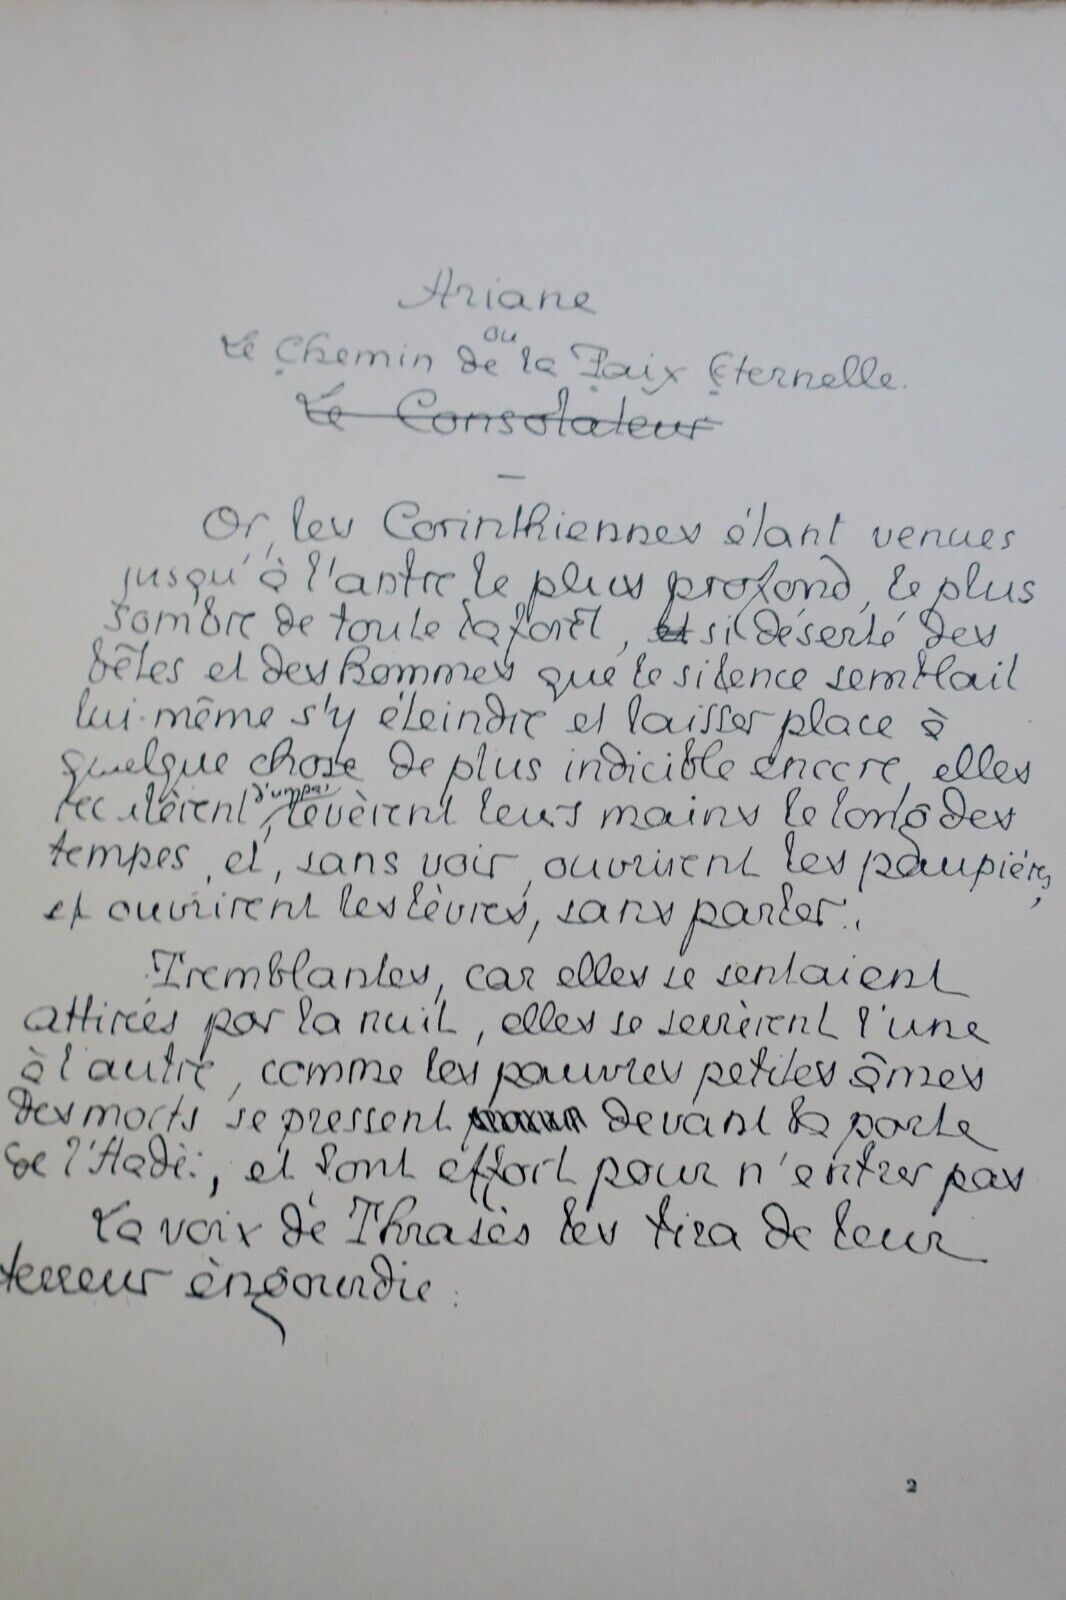 Ariane
ou
Le Chemin de la Paix Eternelle.
Le Consolateur
—
Or, les Corinthiennes étant venues
jusqu'à l'antre le plus profond, le plus
sombre de toute la forêt, et si déserté des
bêtes et des hommes que le silence semblait
lui-même s'y éteindre et laisser place à
quelque chose de plus indicible encore, elles
reculèrent d'un pas, levèrent leurs mains le long des
tempes, et, sans voir, ouvrirent les paupières,
et ouvrirent les lèvres, sans parler.
Tremblantes, car elles se sentaient
attirées par la nuit, elles se serrèrent l'une
à l'autre, comme les pauvres petites âmes
des morts se pressent devant la porte
de l'Hadès, et font effort pour n'entrer pas
La voix de Thrasès les tira de leur
terreur engourdie :
2